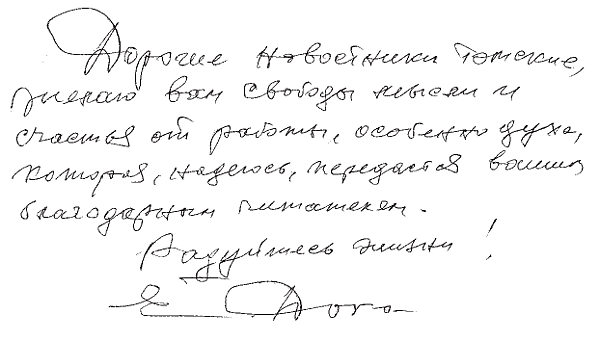 Дорогие Новостники Томские,
желаю вам свободы мысли и
счастья от работы, особенно духа,
которая, надеюсь, передастся вашим
благодарным читателям.
Радуйтесь жизни!
Е Дога